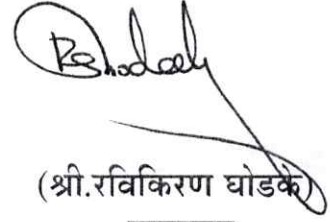 (श्री.रविकिरण घोडके)